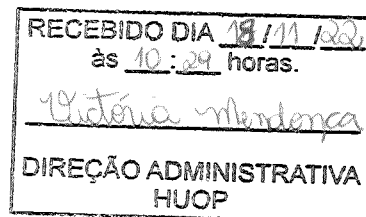 RECEBIDO DIA 18/11/22
às 10:29 horas.
Victória Mendonça
DIREÇÃO ADMINISTRATIVA
HUOP